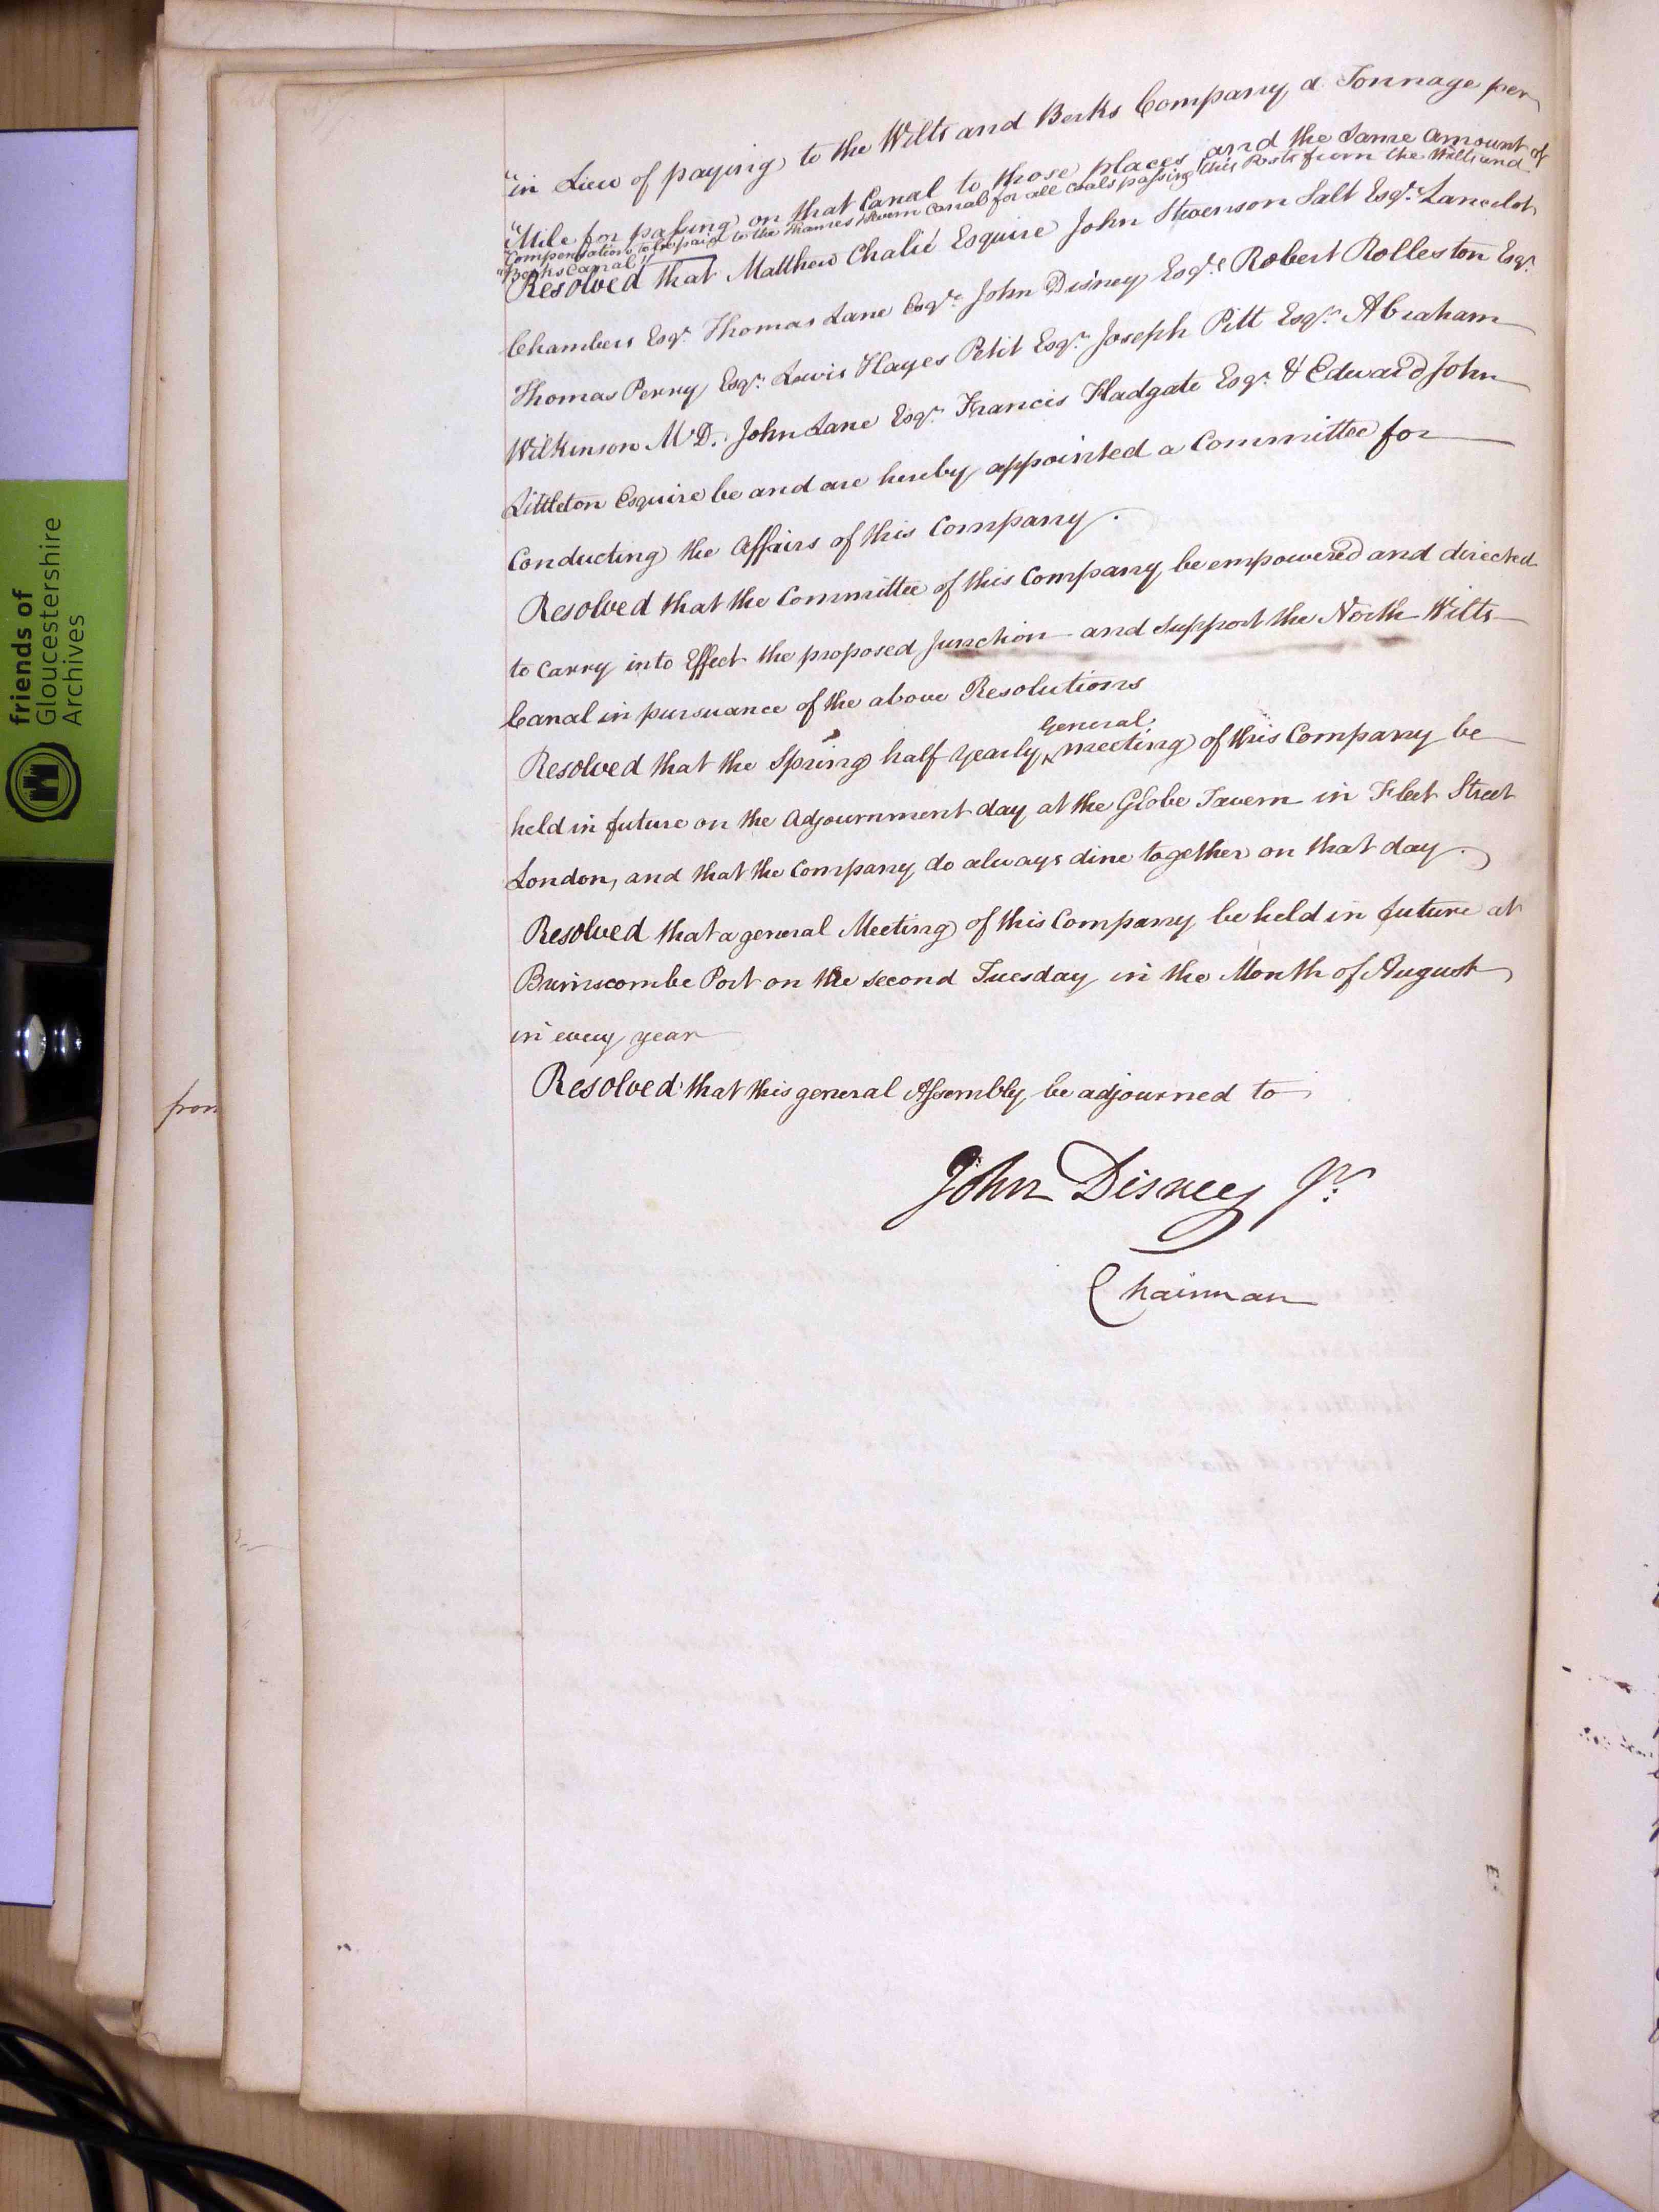 "in Lieu of paying to the Wilts and Berks Company a Tonnage per
"Mile for passing on that Canal to those places and the same amount of
"Compensation to be paid to the Thames & Severn Canal for all Coals passing this Route from the Wilts and
"Berks Canal"
Resolved that Matthew Chalié Esquire John Stevenson Salt Esqr. Lancelot
Chambers Esqr. Thomas Lane Esqr. John Disney Esqr. Robert Rolleston Esqr.
Thomas Perry Esqr. Lewis Hayes Petit Esqr. Joseph Pitt Esqr. Abraham
Wilkinson M.D. John Lane Esqr. Francis Fladgate Esqr. & Edward John
Littleton Esquire be and are hereby appointed a Committee for
Conducting the Affairs of this Company.
Resolved that the Committee of this Company be empowered and directed
to carry into Effect the proposed Junction and support the North Wilts
Canal in pursuance of the above Resolutions
General
Resolved that the Spring half yearly meeting of this Company be
held in future on the Adjournment day at the Globe Tavern in Fleet Street
London, and that the Company do always dine together on that day.
Resolved that a general Meeting of this Company be held in future at
Brimscombe Port on the second Tuesday in the Month of August
in every year
Resolved that this general Assembly be adjourned to
John Disney Jr.
Chairman
from
friends of
Gloucestershire
Archives